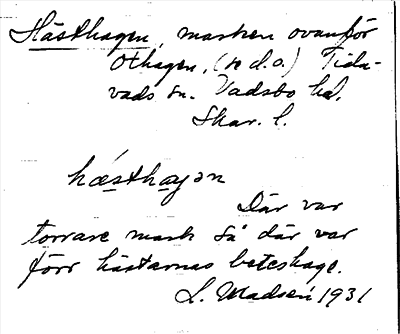 Hästhagen, marken ovanför
Othagen, (se d.o.) Tida-
vads sn. Vadsbo hd.
Skar. l.
hæsthagən
Där var
torrare mark så där var
förr hästarnas beteshage.
L. Madsén 1931